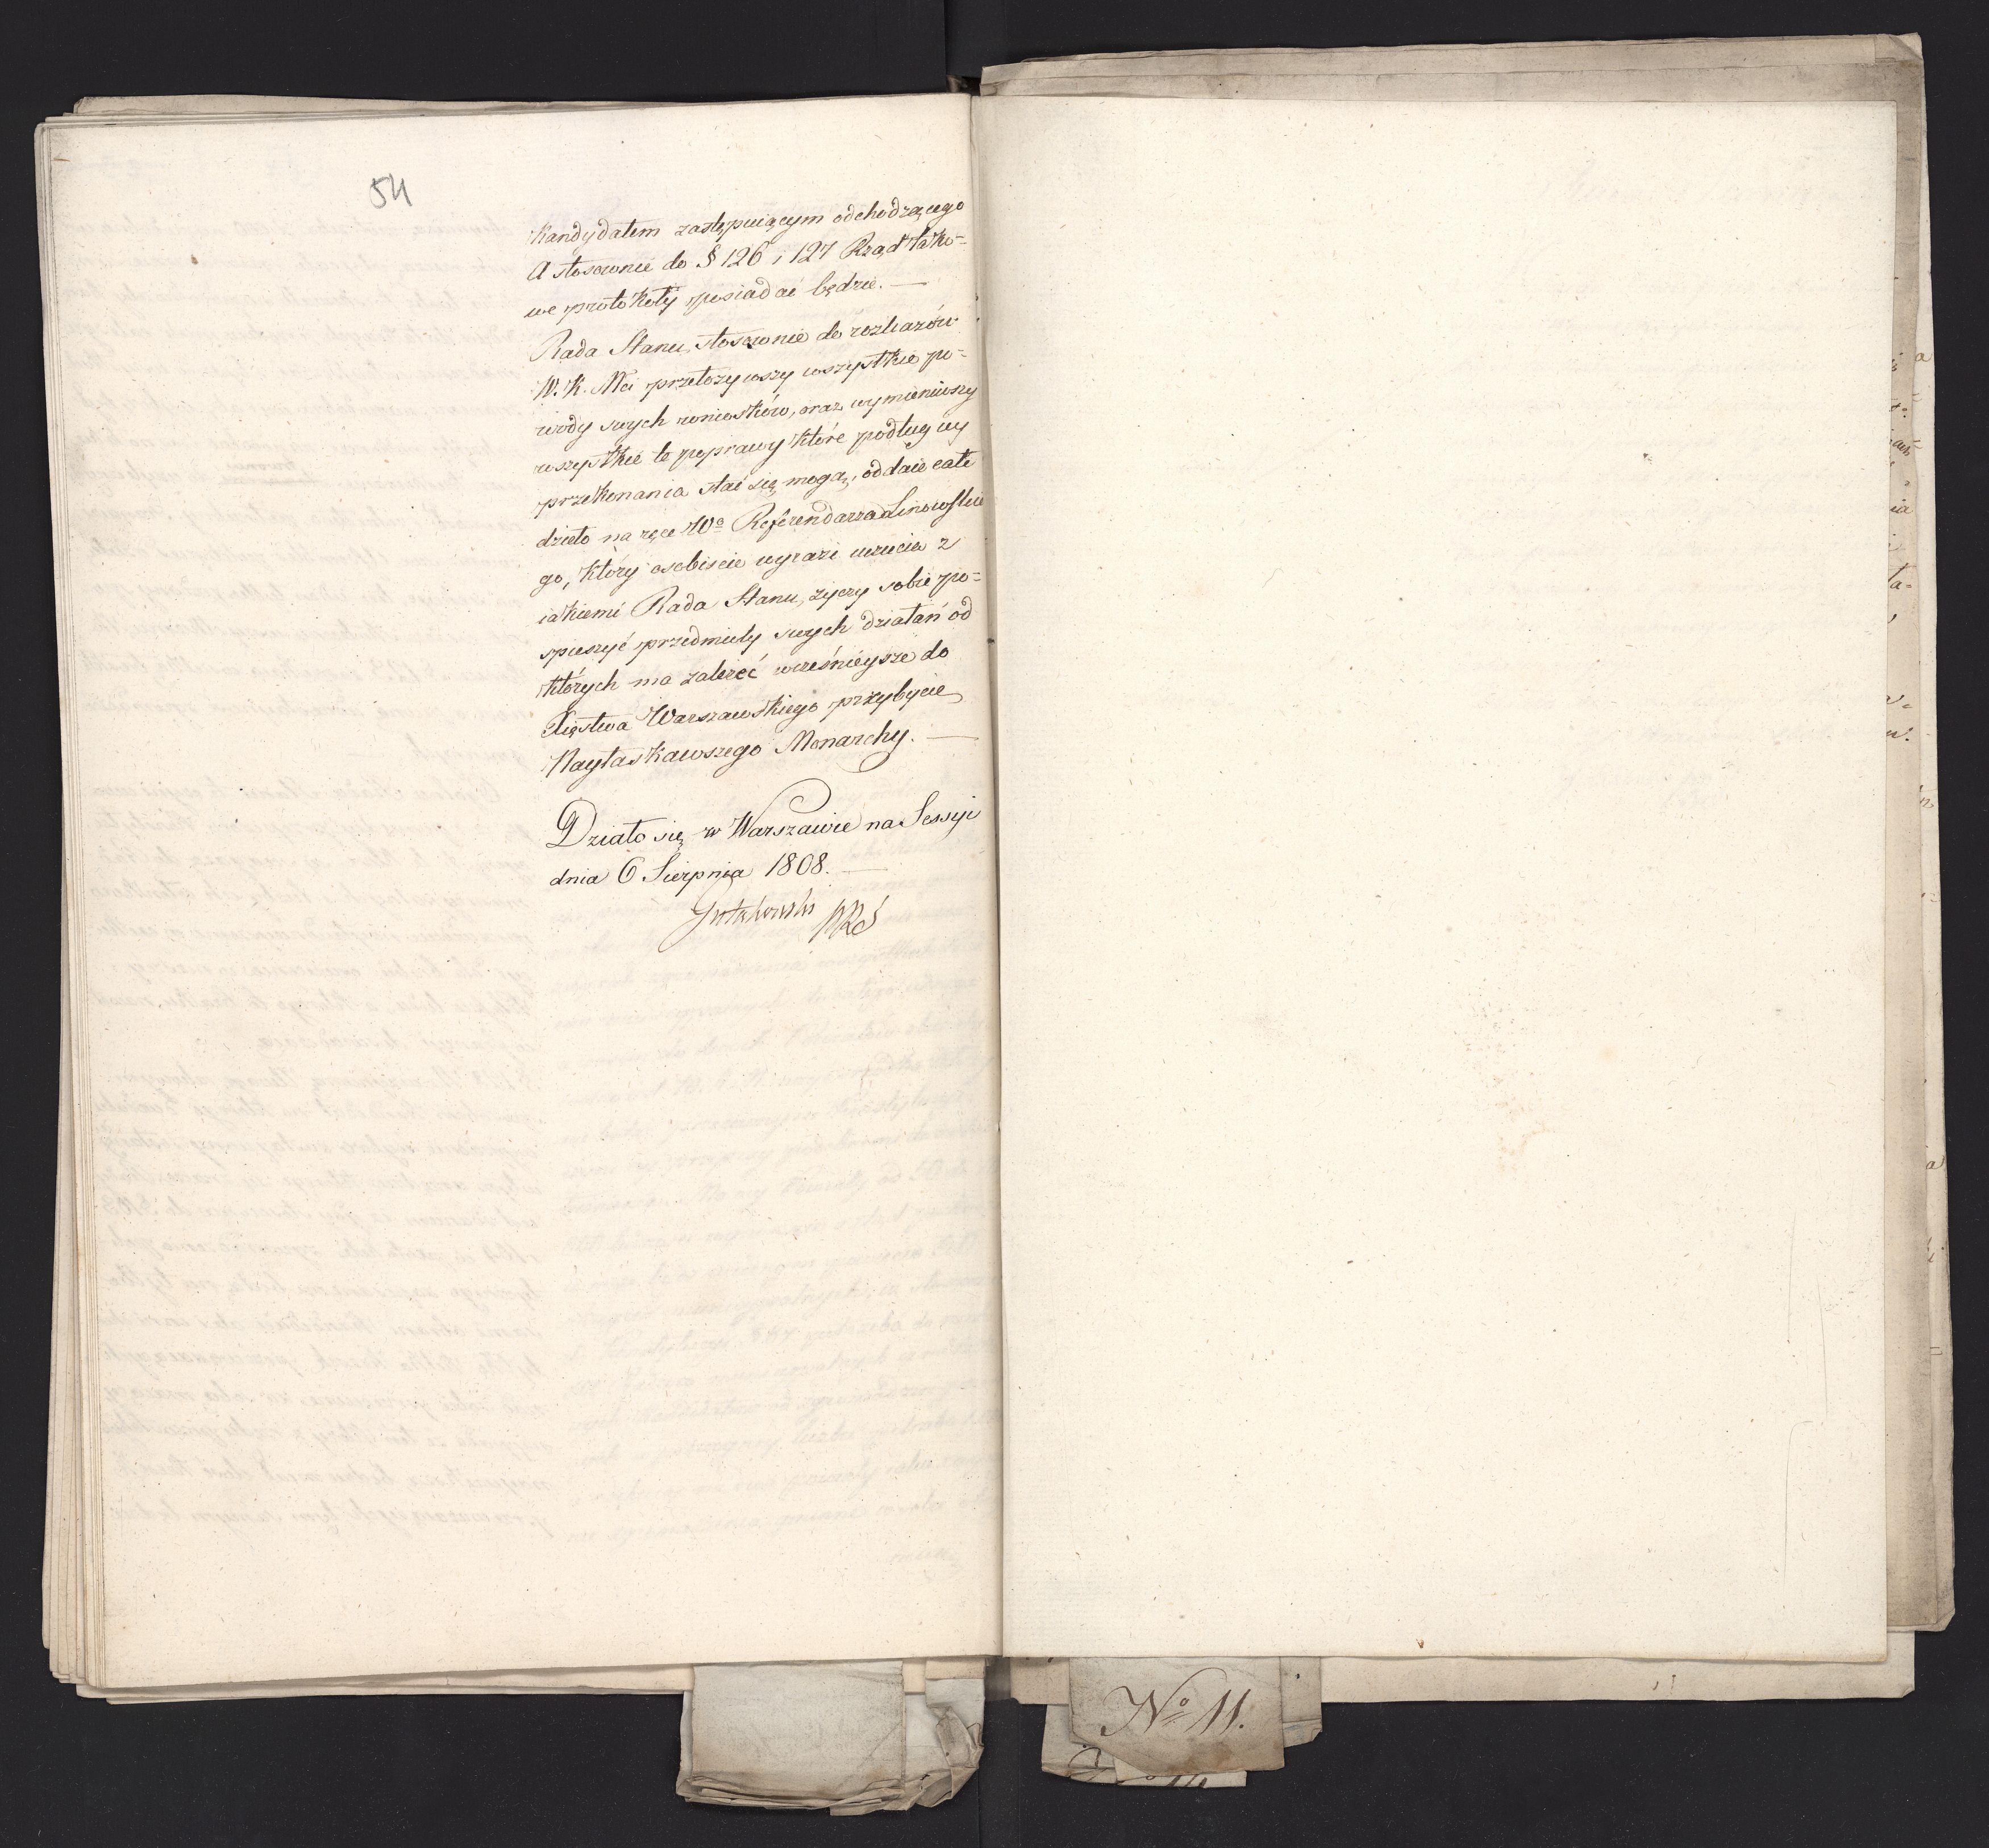 54
Kandydatem zastępuiącym odchodzącego
A stosownie do § 126 i 127 Rząd tako=
we protokoły posiadać będzie. —
Rada Stanu, stosownie do rozkazów
W. K. Mci przełożywszy wszystkie po=
wody swych wniosków, oraz wymieniwszy
wszystkie te poprawy które podług iey
przekonania stać się mogą, oddaie całe
dzieło na ręce Wo Referendarza Linowskie
go, który osobiście wyrazi uczucia z
iakiemi Rada Stanu, życzy sobie po=
spieszyć przedmioty swych działań od
których ma zależeć wcześnieysze do
Xięstwa Warszawskiego przybycie
Nayłaskawszego Monarchy. —
Działo się w Warszawie na Sessyi
dnia 6 Sierpnia 1808. —
Gutakowski PRS
No 11.